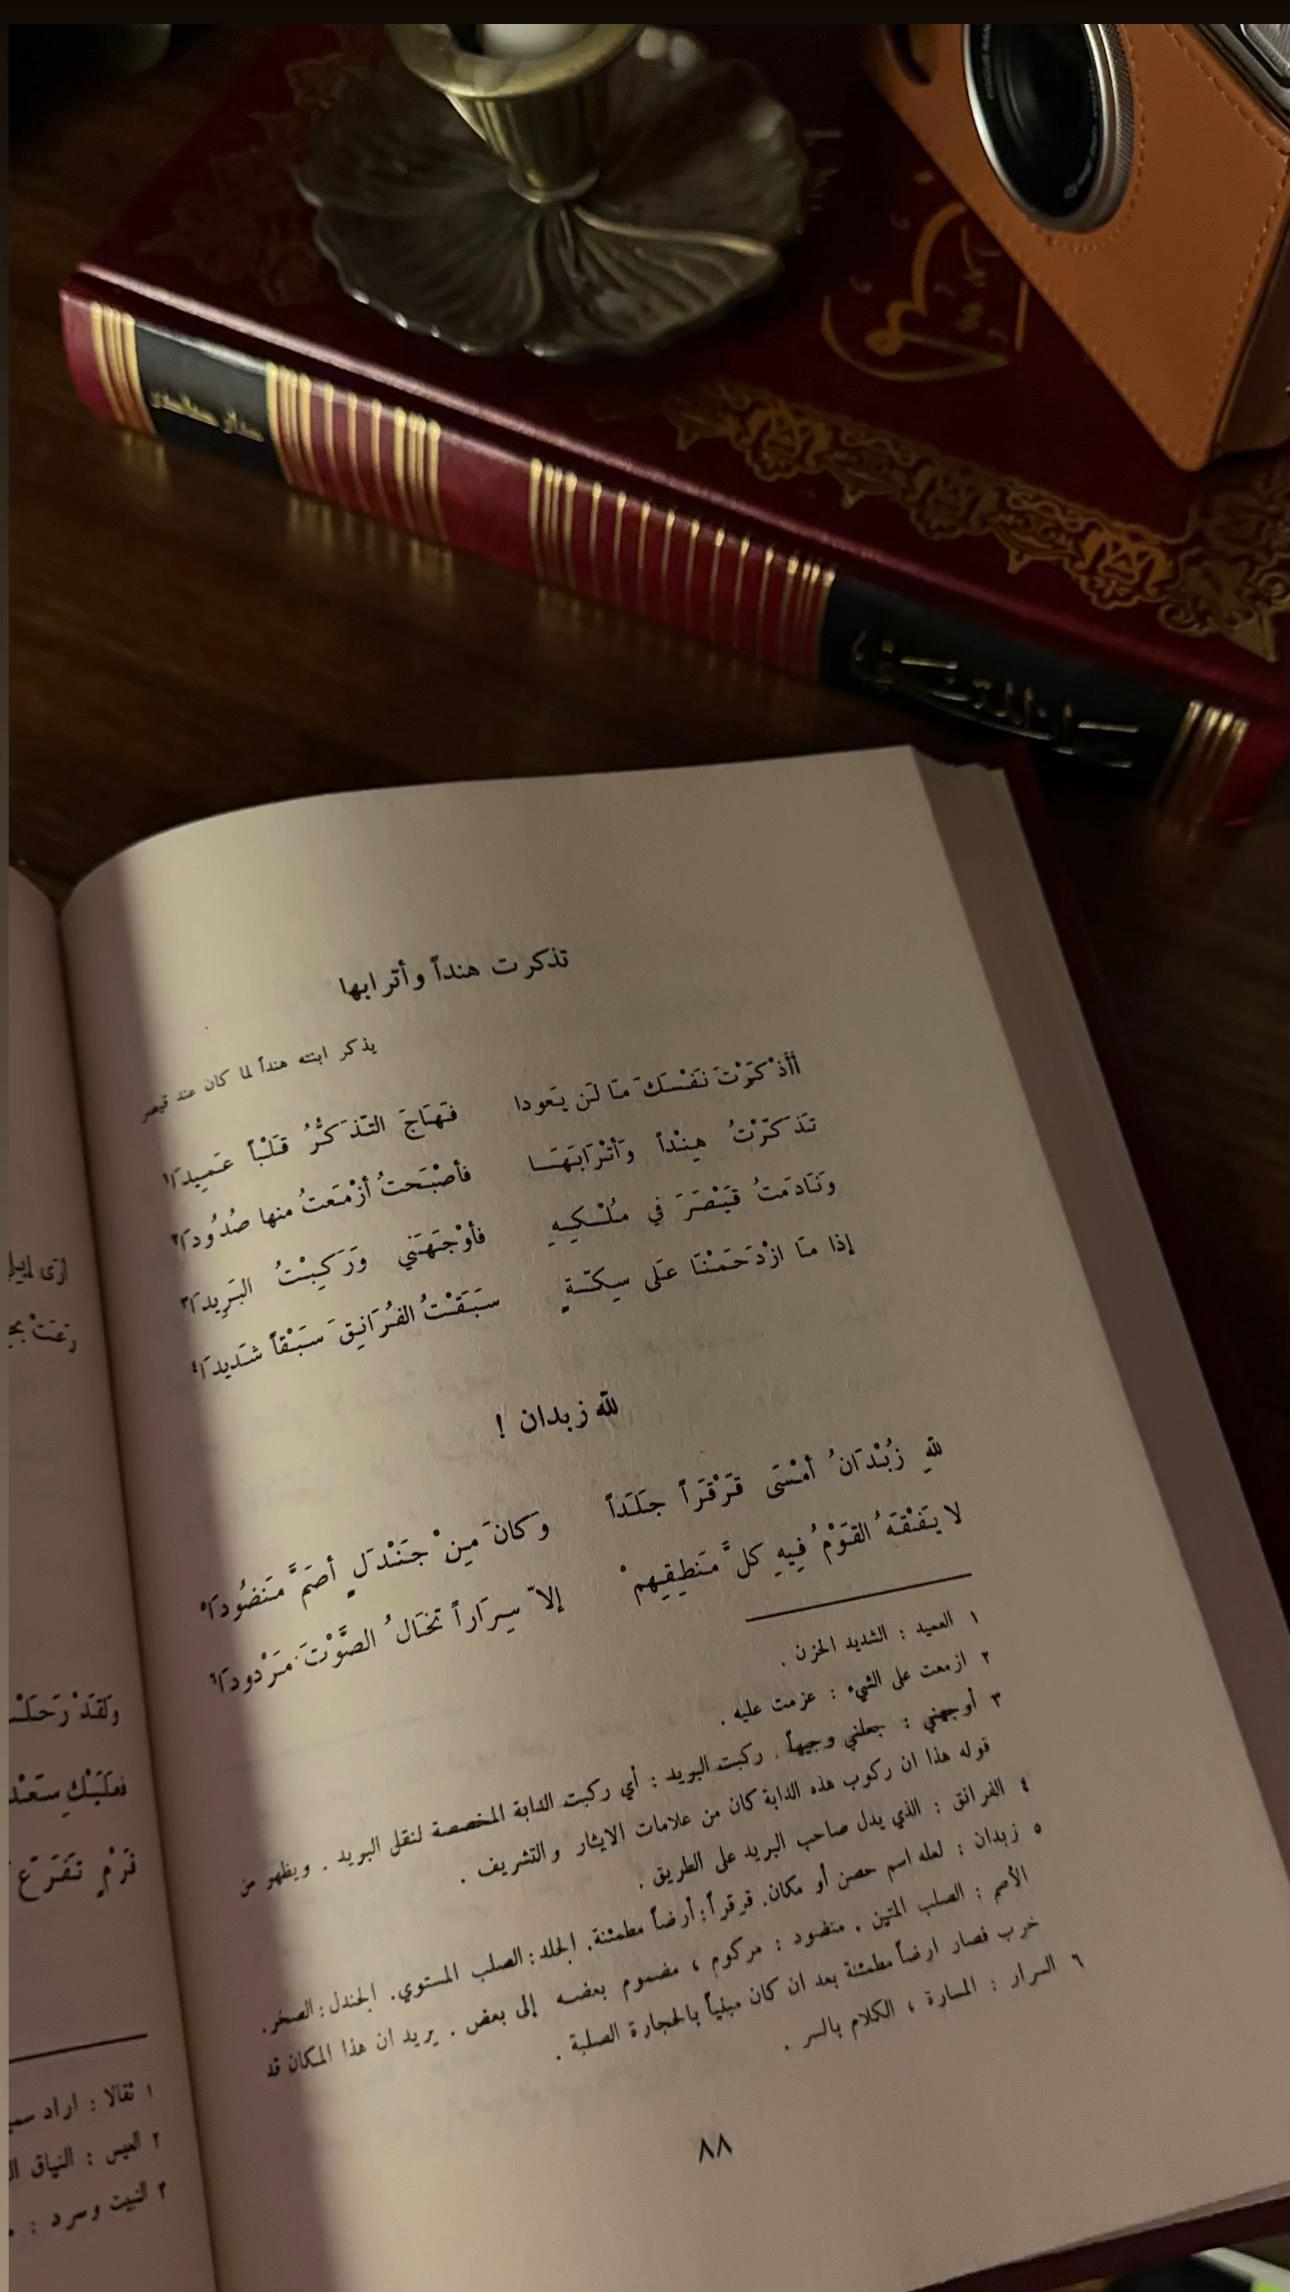 ديوان المتنبي
دار صادر
تذكرت هنداً وأترابها
يذكر ابنته هنداً لما كان عند قيصر
أأذْكَرْتَ نَفْسَكَ مَا لَن يَعودا فَهَاجَ التّذَكّرُ قَلْباً عَمِيدَا١
تَذَكّرْتُ هِنْداً وَأتْرَابَهَا فأصْبَحتُ أزْمَعتُ منها صُدُودَا٢
وَنَادَمتُ قَيْصَرَ في مُلْكِهِ فأوْجَهَني وَرَكِبْتُ البَرِيدَا٣
إذا مَا ازْدَحَمْنَا عَلى سِكّةٍ سَبَقْتُ الفُرَانِقَ سَبْقاً شَديدَا٤
لله زبدان !
للهِ زُبْدَانُ أمْسَى قَرْقَراً جَلَداً وَكانَ مِنْ جَنْدَلٍ أصَمَّ مَنضُودَا٥
لا يَفْقَهُ القَوْمُ فِيهِ كلَّ مَنطِقِهِمْ إلاّ سِرَاراً تَخَالُ الصَّوْتَ مَرْدودَا٦
١ العميد : الشديد الحزن .
٢ ازمعت على الشيء : عزمت عليه .
٣ أوجهني : جعلني وجيهاً . ركبت البريد : أي ركبت الدابة المخصصة لنقل البريد . ويظهر من
قوله هذا ان ركوب هذه الدابة كان من علامات الايثار والتشريف .
٤ الفرانق : الذي يدل صاحب البريد على الطريق .
٥ زبدان : لعله اسم حصن أو مكان. قرقراً : أرضاً مطمئنة. الجلد : الصلب المستوي. الجندل : الصخر.
الأصم : الصلب المتين . منضود : مركوم ، مضموم بعضه إلى بعض . يريد ان هذا المكان قد
خرب فصار ارضاً مطمئنة بعد ان كان مبنياً بالحجارة الصلبة .
٦ السرار : المسارة ، الكلام بالسر .
٨٨
أرى إبلي
رَعَتْ
وَلقَدْ رَحَلْتُ
فعَلَيْكِ سَعْدَ
قَرْمٍ تَفَرّعَ
١ ثقالا : اراد
٢ العيس : النياق
٣ النبيت وسرد :